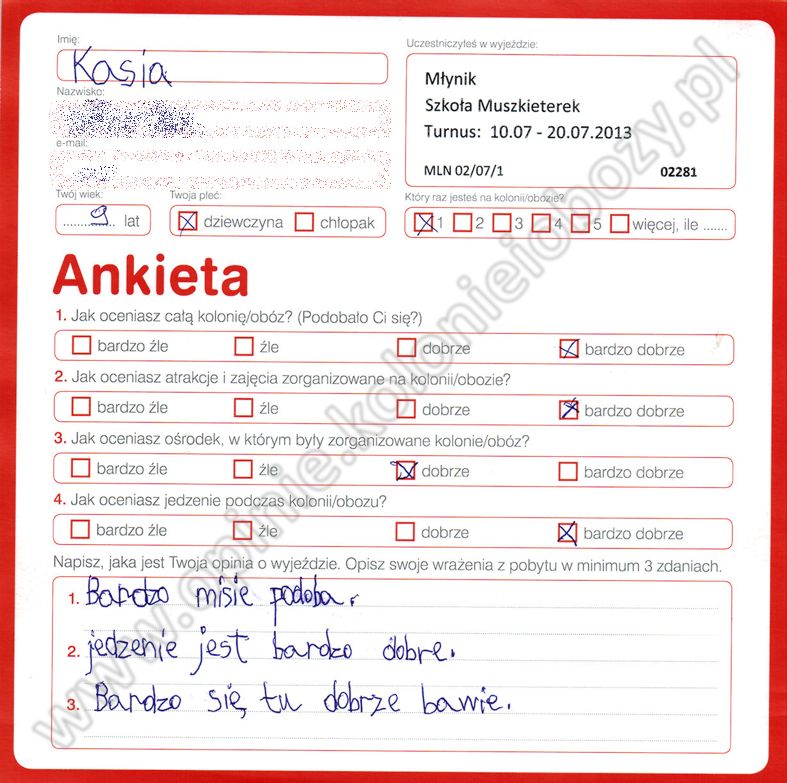 Imię:
Kasia
Nazwisko:
e-mail:
Twój wiek:
9 lat
Twoja płeć:
dziewczyna chłopak
Uczestniczyłeś w wyjeździe:
Młynik
Szkoła Muszkieterek
Turnus: 10.07 - 20.07.2013
MLN 02/07/1 02281
Który raz jesteś na kolonii/obozie?
1 2 3 4 5 więcej, ile .......
Ankieta
1. Jak oceniasz całą kolonię/obóz? (Podobało Ci się?)
bardzo źle źle dobrze bardzo dobrze
2. Jak oceniasz atrakcje i zajęcia zorganizowane na kolonii/obozie?
bardzo źle źle dobrze bardzo dobrze
3. Jak oceniasz ośrodek, w którym były zorganizowane kolonie/obóz?
bardzo źle źle dobrze bardzo dobrze
4. Jak oceniasz jedzenie podczas kolonii/obozu?
bardzo źle źle dobrze bardzo dobrze
Napisz, jaka jest Twoja opinia o wyjeździe. Opisz swoje wrażenia z pobytu w minimum 3 zdaniach.
1. Bardzo misie podoba.
2. jedzenie jest bardzo dobre.
3. Bardzo się tu dobrze bawie.
www.opinie.kolonieiobozy.pl